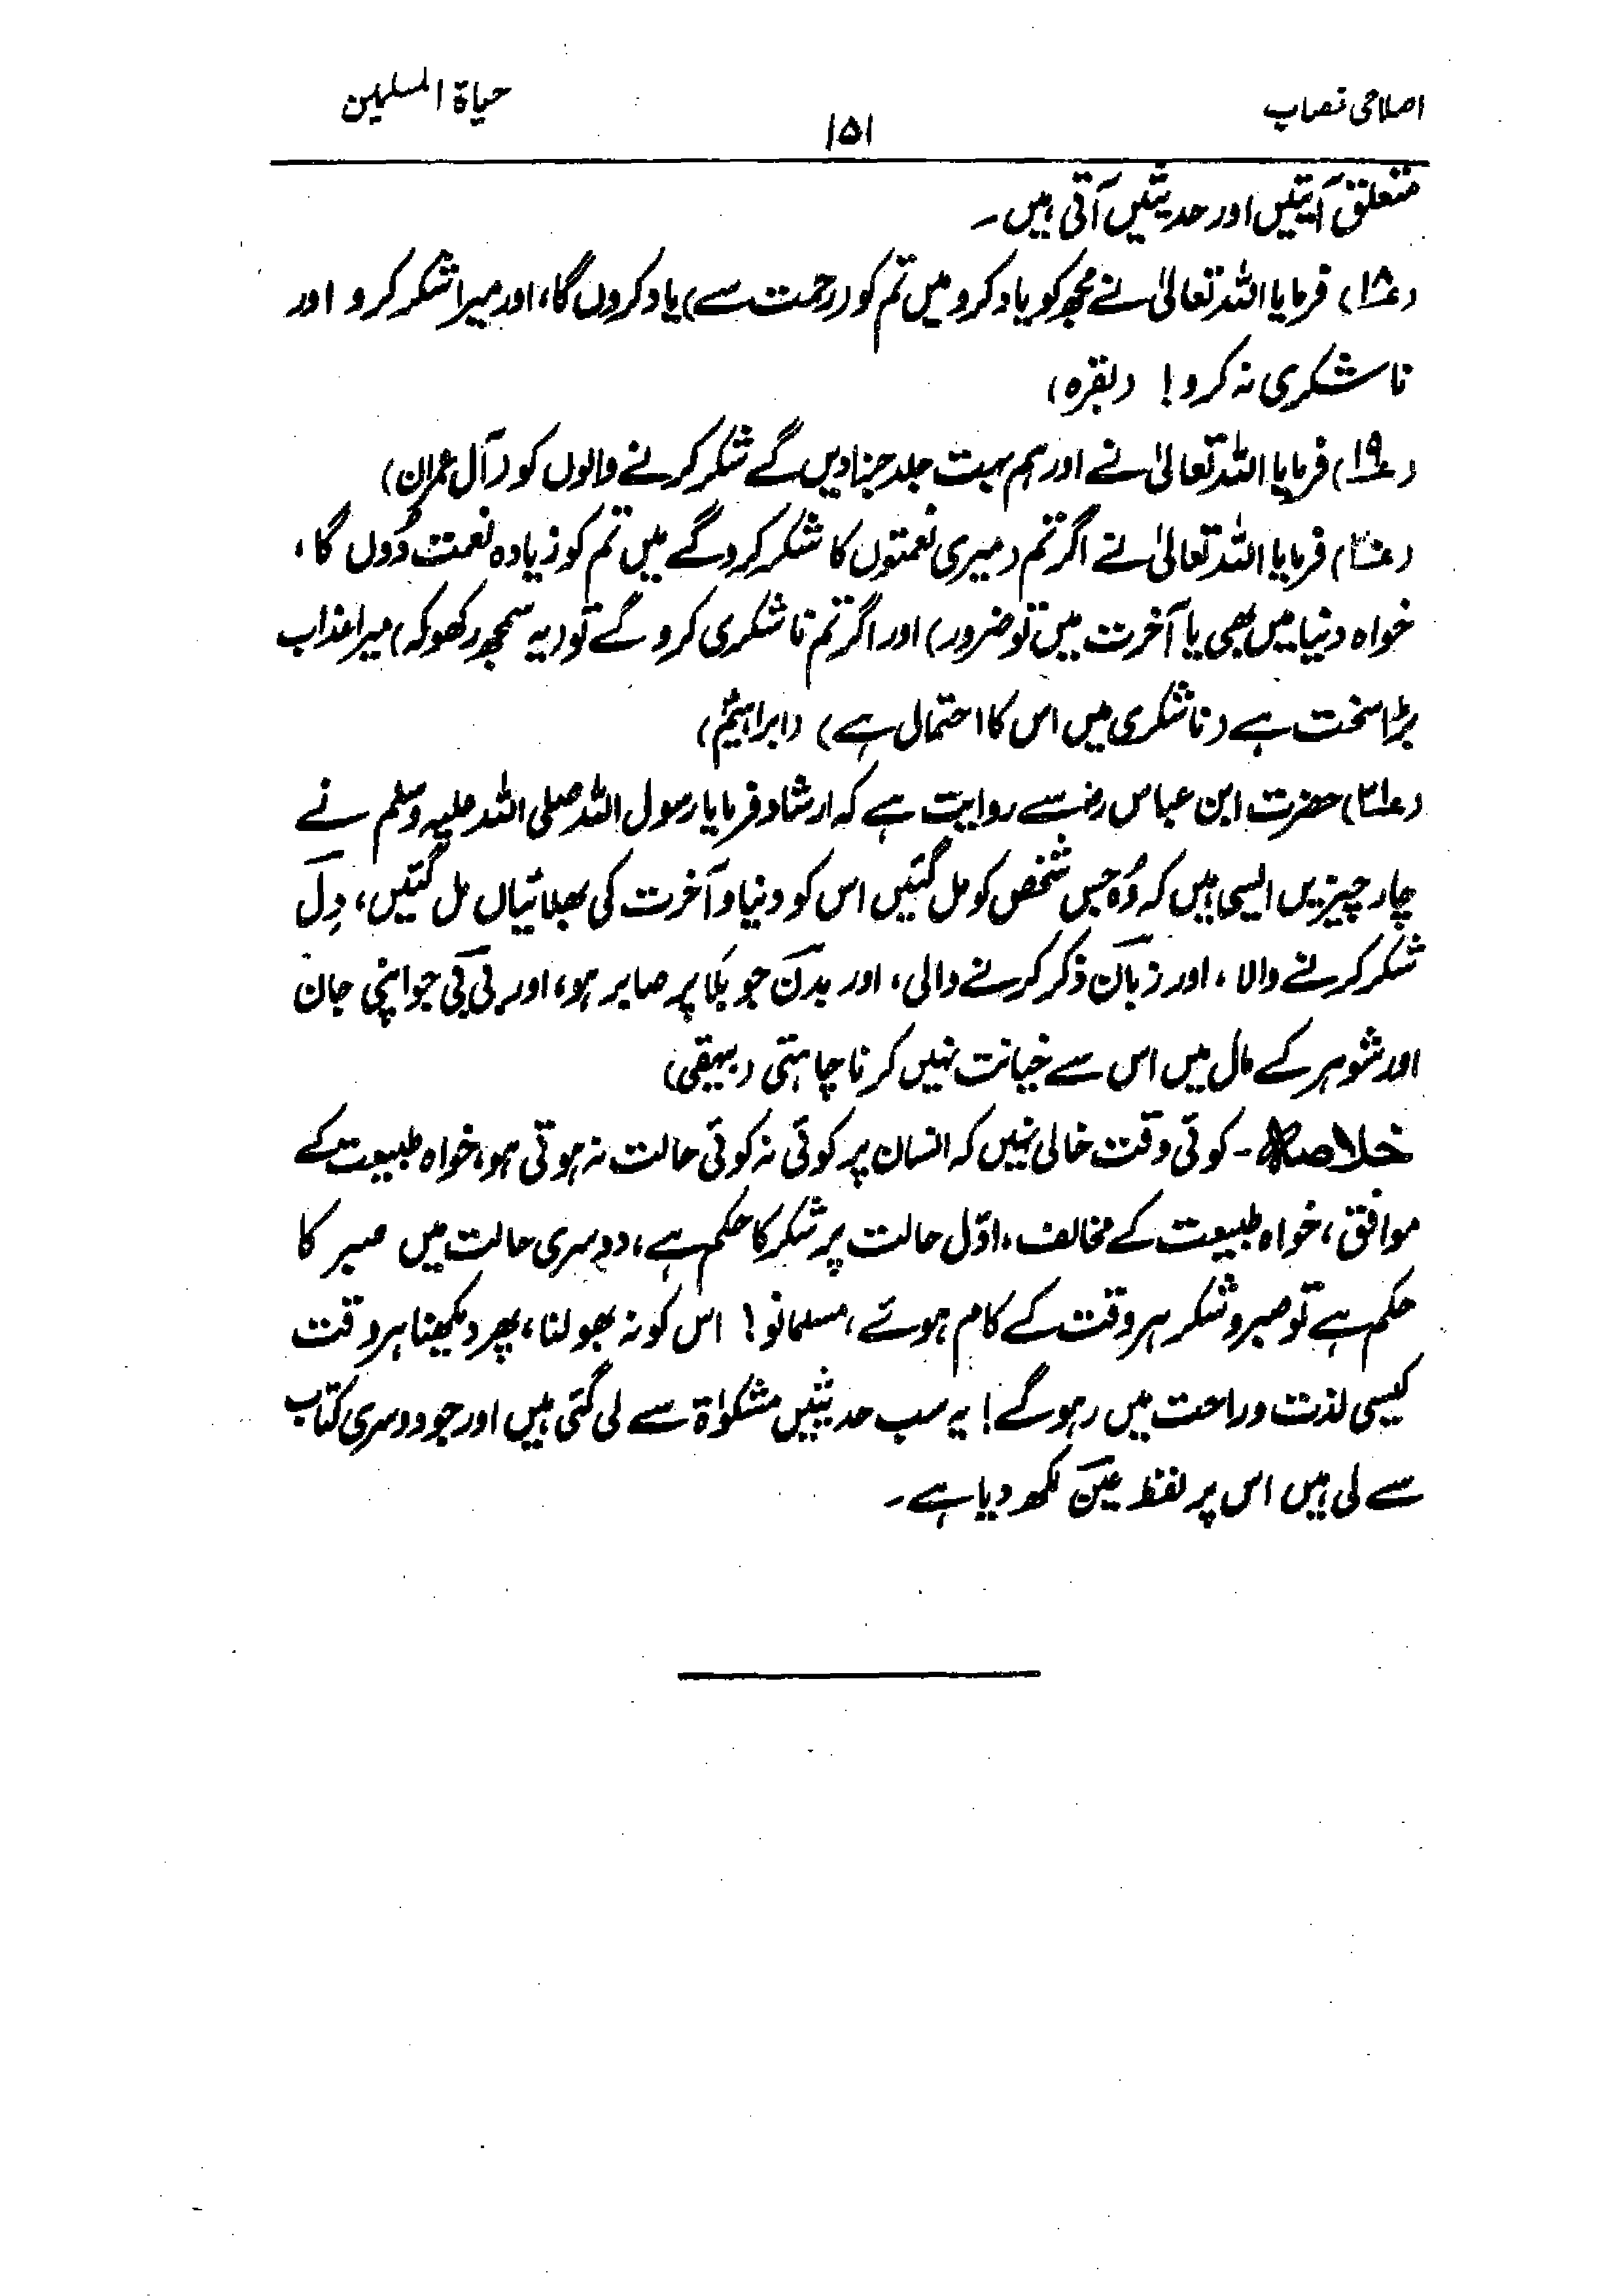 اصلاحی نصاب
۱۵۱
حیاۃ المسلمین
متعلق آیتیں اور حدیثیں آتی ہیں۔
(۱۸) فرمایا اللہ تعالیٰ نے مجھ کو یاد کرو میں تم کو (رحمت سے) یاد کروں گا، اور میرا شکر کرو اور
ناشکری نہ کرو! (بقرہ)
(۱۹) فرمایا اللہ تعالیٰ نے اور ہم بہت جلد جزا دیں گے شکر کرنے والوں کو (آل عمران)
(۲۰) فرمایا اللہ تعالیٰ نے اگر تم (میری نعمتوں کا شکر کرو گے میں تم کو زیادہ نعمت دُوں گا،
خواہ دنیا میں بھی یا آخرت میں تو ضرور) اور اگر تم ناشکری کرو گے تو (یہ سمجھ رکھو کہ) میرا عذاب
بڑا سخت ہے (ناشکری میں اس کا احتمال ہے) (ابراہیمؑ)
(۲۱) حضرت ابن عباس رضؓ سے روایت ہے کہ ارشاد فرمایا رسول اللہ صلی اللہ علیہ وسلم نے
چار چیزیں ایسی ہیں کہ وُہ جس شخص کو مل گئیں اس کو دنیا و آخرت کی بھلائیاں مل گئیں، دِل
شکر کرنے والا، اور زبان ذکر کرنے والی، اور بدن جو بلا پر صابر ہو، اور بی بی جو اپنی جان
اور شوہر کے مال میں اس سے خیانت نہیں کرنا چاہتی (بیہقی)
خلاصہ۔ کوئی وقت خالی نہیں کہ انسان پر کوئی نہ کوئی حالت نہ ہوتی ہو، خواہ طبیعت کے
موافق، خواہ طبیعت کے مخالف، اوّل حالت پر شکر کا حکم ہے، دوسری حالت میں صبر کا
حکم ہے تو صبر و شکر ہر وقت کے کام ہوئے، مسلمانو! اس کو نہ بھولنا، پھر دیکھنا ہر وقت
کیسی لذت و راحت میں رہو گے! یہ سب حدیثیں مشکوٰۃ سے لی گئی ہیں اور جو دوسری کتاب
سے لی ہیں اس پر لفظ عین لکھ دیا ہے۔